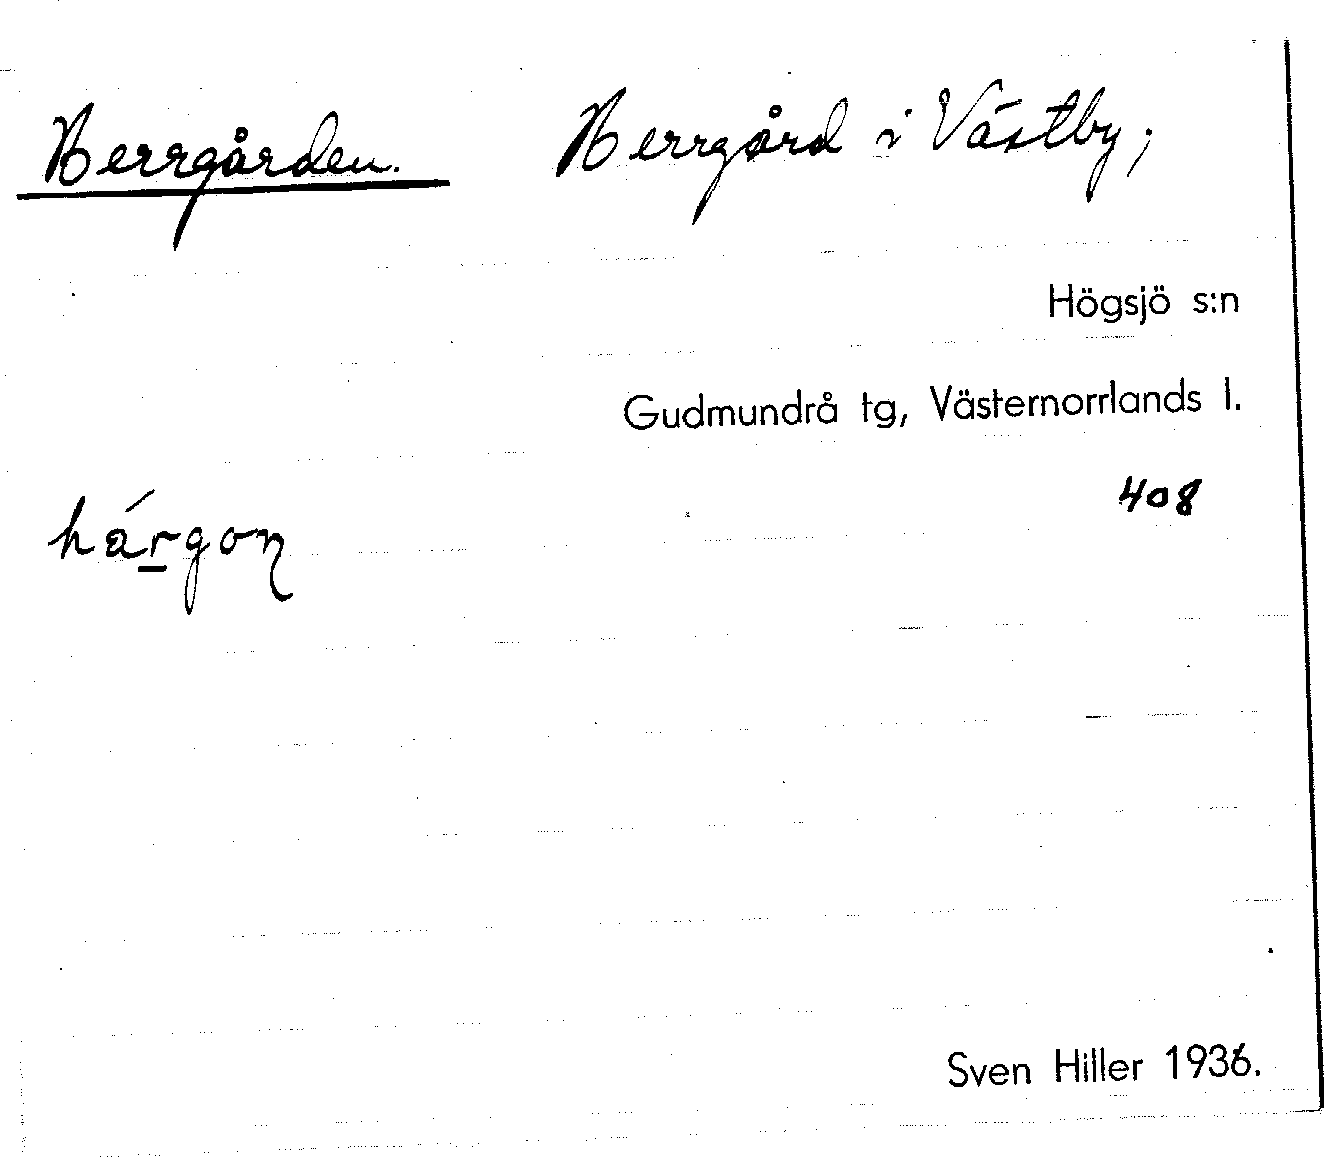 Herrgården. Herrgård i Västby;
Högsjö s:n
Gudmundrå tg, Västernorrlands l.
408
hárgoŋ
Sven Hiller 1936.